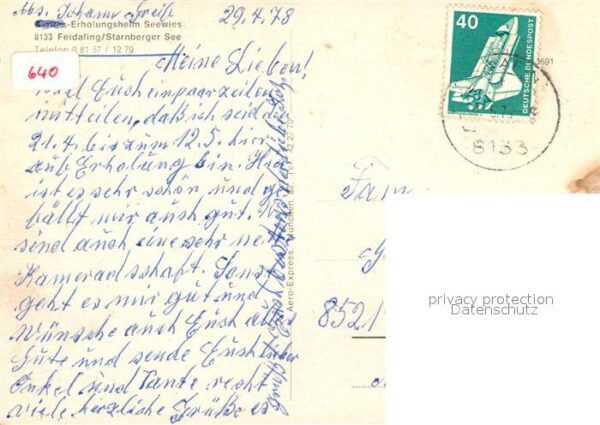 Abs. Johann Greiß
29.4.78
Caritas-Erholungsheim Seewies
8133 Feldafing/Starnberger See
Telefon 0 81 57 / 12 70
640
Meine Lieben!
will Euch ein paar Zeilen
mitteilen, daß ich seid den
21.4. bis zum 12.5. hier
auf Erholung bin. Hier
ist es sehr schön und ge
fällt mir auch gut. Wir
sind auch eine sehr net
Kameradschaft. Sonst
geht es mir gut und
wünsche auch Euch alles
Gute und sende Euch lieber
Onkel und Tante recht
viele herzliche Grüße es
grüßt Euch
Aero-Express München
40
DEUTSCHE BUNDESPOST
8133
Fam
852
privacy protection
Datenschutz